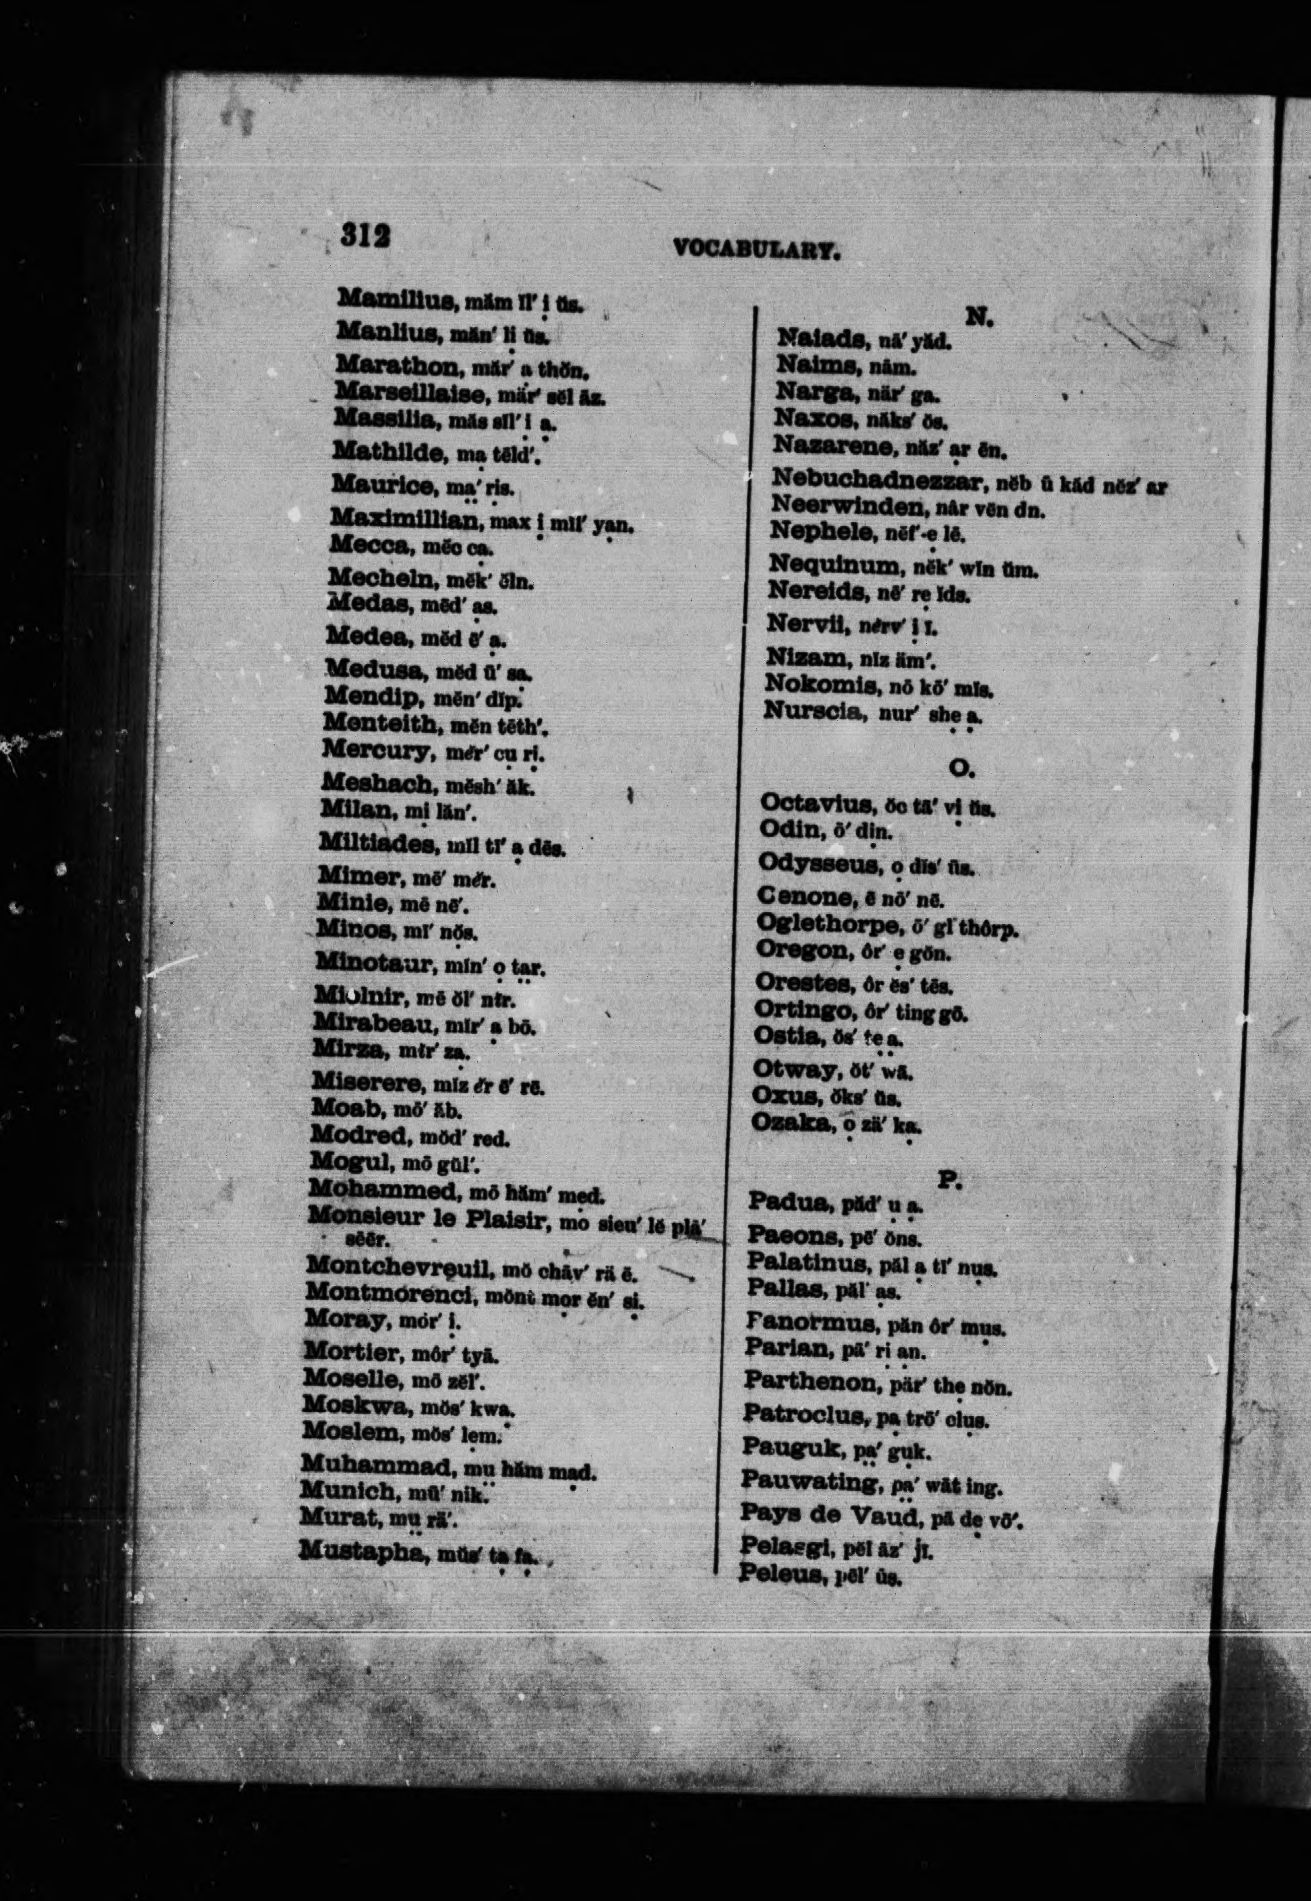 312
VOCABULARY.
Mamilius, măm ĭl′ ị ŭs.
Manlius, măn′ lị ŭs.
Marathon, măr′ ạ thŏn.
Marseillaise, mär′ sĕl āz.
Massilia, măs sĭl′ ị ạ.
Mathilde, mạ tēld′.
Maurice, ma̤′ rịs.
Maximillian, max ị mĭl′ yạn.
Mecca, mĕc cạ.
Mecheln, mĕk′ ĕln.
Medas, mēd′ ạs.
Medea, mĕd ē′ ạ.
Medusa, mĕd ū′ sạ.
Mendip, mĕn′ dĭp.
Menteith, mĕn tēth′.
Mercury, mẽr′ cụ rị.
Meshach, mĕsh′ ăk.
Milan, mị lăn′.
Miltiades, mĭl tī′ ạ dēs.
Mimer, mē′ mẽr.
Minie, mē nē′.
Minos, mī′ nọ̆s.
Minotaur, mĭn′ ọ ta̤r.
Miolnir, mē ŏl′ nĩr.
Mirabeau, mĭr′ ạ bō.
Mirza, mĩr′ zạ.
Miserere, mĭz ẽr ē′ rē.
Moab, mō′ ăb.
Modred, mŏd′ red.
Mogul, mō gŭl′.
Mohammed, mō hăm′ mẹd.
Monsieur le Plaisir, mo sieu′ lĕ plā′
sēēr.
Montchevreuil, mō châv′ rä ē.
Montmorenci, mŏnt mọr ĕn′ sị.
Moray, mór′ ị.
Mortier, môr′ tyā.
Moselle, mō zĕl′.
Moskwa, mŏs′ kwạ.
Moslem, mŏs′ lẹm.
Muhammad, mṳ hăm mạd.
Munich, mū′ nik.
Murat, mṳ rä′.
Mustapha, mŭs′ tạ fạ.
N.
Naiads, nā′ yăd.
Naims, nâm.
Narga, när′ ga.
Naxos, năks′ ŏs.
Nazarene, năz′ ạr ēn.
Nebuchadnezzar, nĕb ū kăd nĕz′ ar
Neerwinden, nâr vēn dn.
Nephele, nĕf′ ẹ lē.
Nequinum, nĕk′ wĭn ŭm.
Nereids, nē′ rẹ ĭds.
Nervii, nẽrv′ ị ī.
Nizam, nĭz äm′.
Nokomis, nō kō′ mĭs.
Nurscia, nur′ shẹ ạ.
O.
Octavius, ŏc tā′ vị ŭs.
Odin, ō′ dịn.
Odysseus, ọ dĭs′ ūs.
Cenone, ē nō′ nē.
Oglethorpe, ō′ gl thôrp.
Oregon, ôr′ ẹ gŏn.
Orestes, ôr ĕs′ tēs.
Ortingo, ôr′ ting gō.
Ostia, ŏs′ tẹ ạ.
Otway, ŏt′ wā.
Oxus, ŏks′ ŭs.
Ozaka, ọ zä′ kạ.
P.
Padua, păd′ ụ ạ.
Paeons, pē′ ŏns.
Palatinus, păl ạ tī′ nụs.
Pallas, păl′ ạs.
Panormus, păn ôr′ mụs.
Parian, pā′ rị ạn.
Parthenon, pär′ thẹ nŏn.
Patroclus, pạ trō′ clụs.
Pauguk, pa̤′ gụk.
Pauwating, pa̤′ wät ing.
Pays de Vaud, pā dẹ vō′.
Pelasgi, pĕl ăz′ jī.
Peleus, pēl′ ūs.